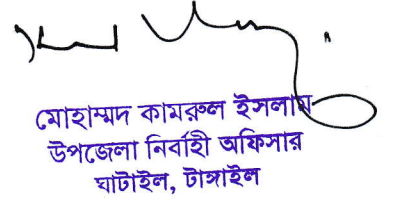 মোহাম্মদ কামরুল ইসলাম
উপজেলা নির্বাহী অফিসার
ঘাটাইল, টাঙ্গাইল